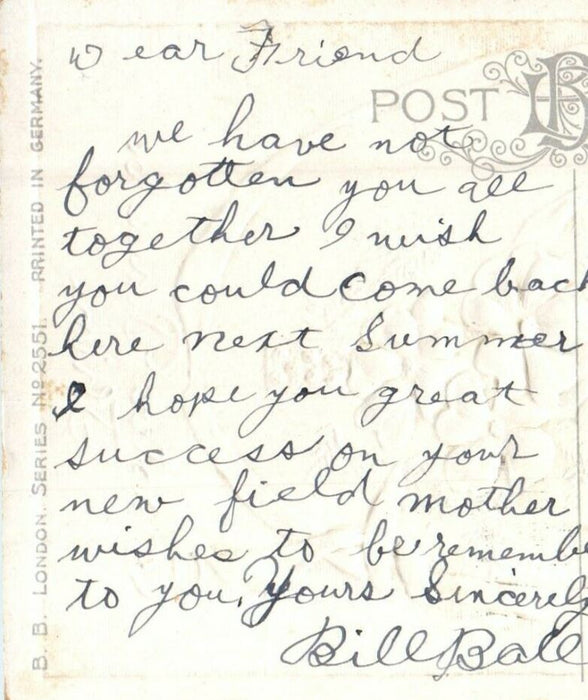 Dear Friend
POST
we have not
forgotten you all
together I wish
you could come back
here next Summer
I hope you great
success on your
new field mother
wishes to be remembe
to you. Yours Sincerely
Bill Ball
B. B. LONDON. SERIES No 2551. PRINTED IN GERMANY.